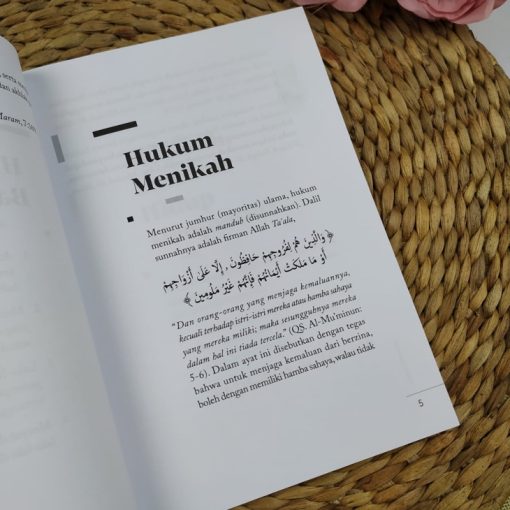 serta
dan akhlak
Maram, 7:
Hukum
Menikah
Menurut jumhur (mayoritas) ulama, hukum
menikah adalah mandub (disunnahkan). Dalil
sunnahnya adalah firman Allah Ta'ala,
﴿ وَالَّذِينَ هُمْ لِفُرُوجِهِمْ حَافِظُونَ . إِلَّا عَلَىٰ أَزْوَاجِهِمْ
أَوْ مَا مَلَكَتْ أَيْمَانُهُمْ فَإِنَّهُمْ غَيْرُ مَلُومِينَ ﴾
"Dan orang-orang yang menjaga kemaluannya,
kecuali terhadap istri-istri mereka atau hamba sahaya
yang mereka miliki; maka sesungguhnya mereka
dalam hal ini tiada tercela." (QS. Al-Mu'minun:
5-6). Dalam ayat ini disebutkan dengan tegas
bahwa untuk menjaga kemaluan dari berzina,
boleh dengan memiliki hamba sahaya, walau tidak
5